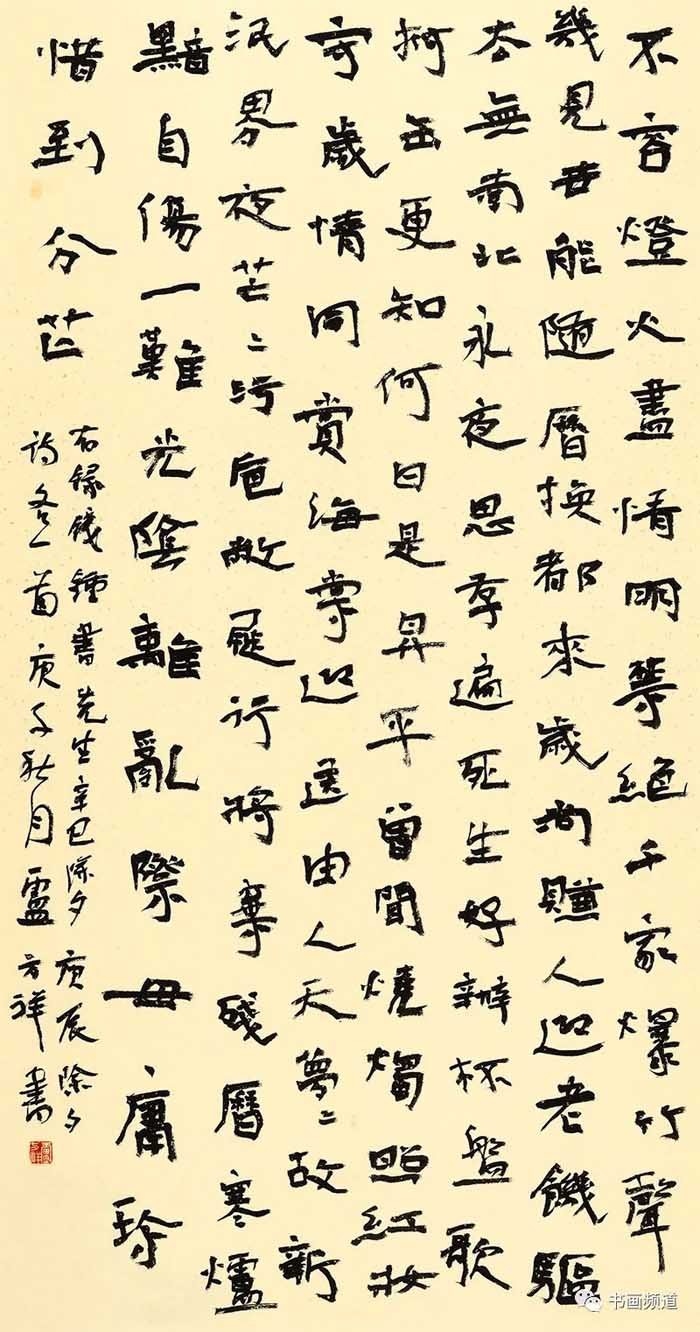 不容燈火盡情明禁絕千家爆竹聲
幾見世能隨曆換都來歲尚賺人迎老饑驅
太無南北永夜思存遍死生好辦杯盤歌
拊缶更知何日是昇平曾聞燒燭照紅妝
守歲情同賞海棠迎送由人天夢〻故新
泯界夜芒〻污卮敝屣行將棄殘曆寒爐
黯自傷一難光陰離亂際毋庸珍
惜到分芒
右錄錢鍾書先生辛巳除夕庚辰除夕
詩各一首庚子秋月盧方祥書
书画频道